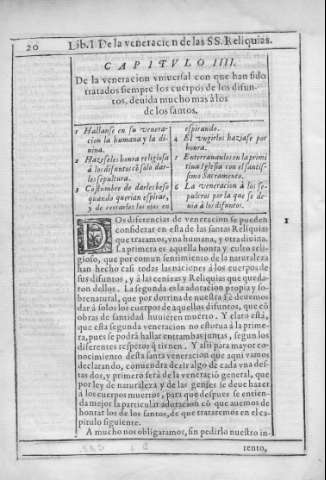 20 Lib. I De la veneracion de las SS. Reliquias.
CAPITVLO IIII.
De la veneracion vniuersal con que han sido
tratados siempre los cuerpos de los difun-
tos, deuida mucho mas à los
de los santos.
1 Hallanse en su venera-
cion la humana y la di-
uina.
2 Hazeseles honra religiosa
à los difuntos cō solo dar-
les sepultura.
3 Costumbre de darles beso
quando querian espirar,
y de cerrarles los ojos en
espirando.
4 El vngirlos haziase por
honra.
5 Enterrauanlos en la primi
tiua Iglesia con el santis-
simo Sacramento.
6 La veneracion à los se-
pulcros por la que se de-
uia à los difuntos.
DOs diferencias de veneracion se pueden
considerar en esta de las santas Reliquias
que tratamos, vna humana, y otra diuina.
La primera es aquella honra y culto reli-
gioso, que por comun sentimiento de la naturaleza
han hecho casi todas las naciones à los cuerpos de
sus difuntos, y à las cenizas y Reliquias que queda-
ron dellos. La segunda es la adoracion propia y so-
brenatural, que por dotrina de nuestra fè deuemos
dar à solos los cuerpos de aquellos difuntos, que cō
obras de santidad huuieren muerto. Y claro està,
que esta segunda veneracion no estorua à la prime-
ra, pues se podrà hallar entrambas juntas, segun los
diferentes respetos q̃ tienen. Y assi para mayor co-
nocimiento desta santa veneracion que aqui vamos
declarando, conuendra dezir algo de cada vna des-
tas dos, y primero serà de la veneraciō general, que
por ley de naturaleza y de las gentes se deue hazer
à los cuerpos muertos, para que despues se entien-
da mejor la particular adoracion cō que auemos de
honrar los de los santos, de que trataremos en el ca-
pitulo siguiente.
A mucho nos obligaramos, sin pedirlo nuestro in-
tento,
1